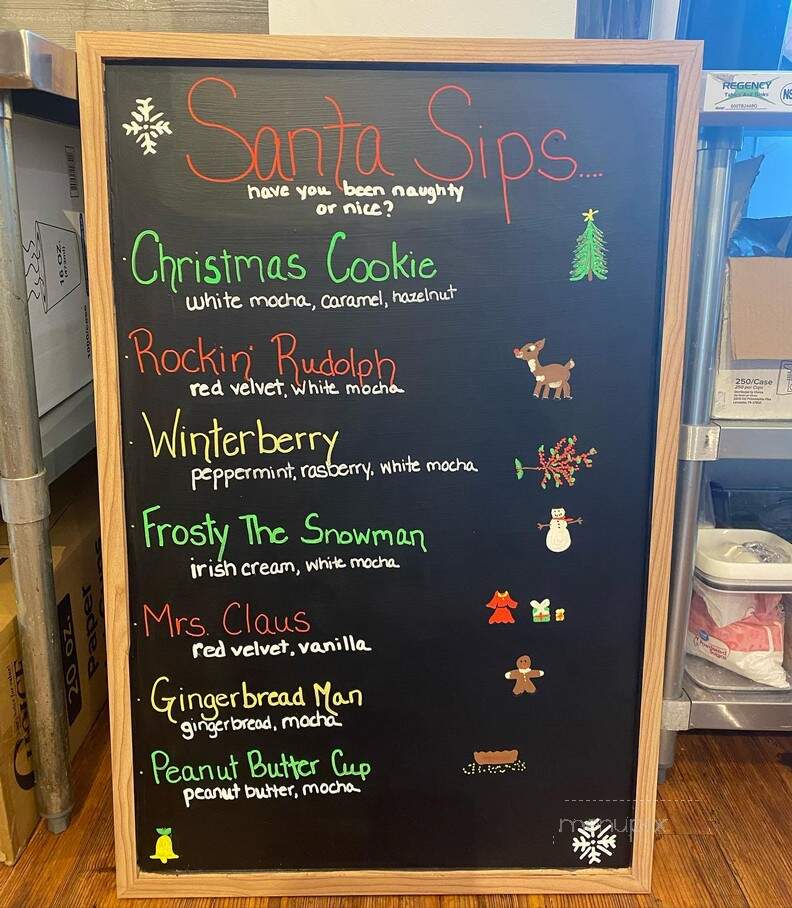 Santa Sips....
have you been naughty
or nice?
Christmas Cookie
white mocha, caramel, hazelnut
Rockin' Rudolph
red velvet, white mocha
Winterberry
peppermint, rasberry, white mocha
Frosty The Snowman
irish cream, white mocha
Mrs. Claus
red velvet, vanilla
Gingerbread Man
gingerbread, mocha
Peanut Butter Cup
peanut butter, mocha
menupix
REGENCY
16 OZ.
20 OZ.
Paper
Choice
250/Case
250 per Case